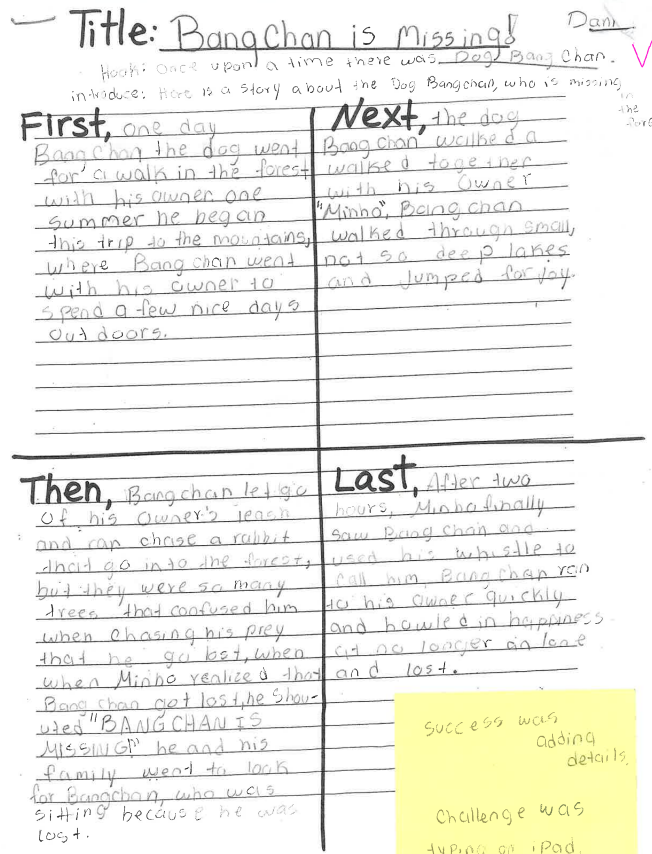 Title: Bang Chan is Missing!
Hook: Once upon a time there was Dog Bang Chan.
introduce: Here is a story about the Dog Bangchan, who is missing
in
the
First, one day
Bang Chan the dog went
for a walk in the forest
with his owner one
summer he began
this trip to the mountains,
where Bang chan went
with his owner to
spend a few nice days
outdoors.
Next, the dog
Bang chan walked a
walked together
with his Owner
"Minho". Bang chan
walked through small,
not so deep lakes
and jumped for joy.
Then, Bang chan let go
of his owner's leash
and ran chase a rabbit
that go into the forest,
but they were so many
trees that confused him
when chasing his prey
that he go lost, when
when Minho realized that
Bang chan got lost, he shou-
uted "BANG CHAN IS
MISSING!" he and his
family went to look
for Bangchan, who was
sitting because he was
lost.
Last, After two
hours, Minho finally
saw Bang Chan and
used his whistle to
call him. Bang Chan ran
to his owner quickly
and howled in happiness
at no longer an lone
and lost.
success was
adding
details.
Challenge was
typing on iPad.